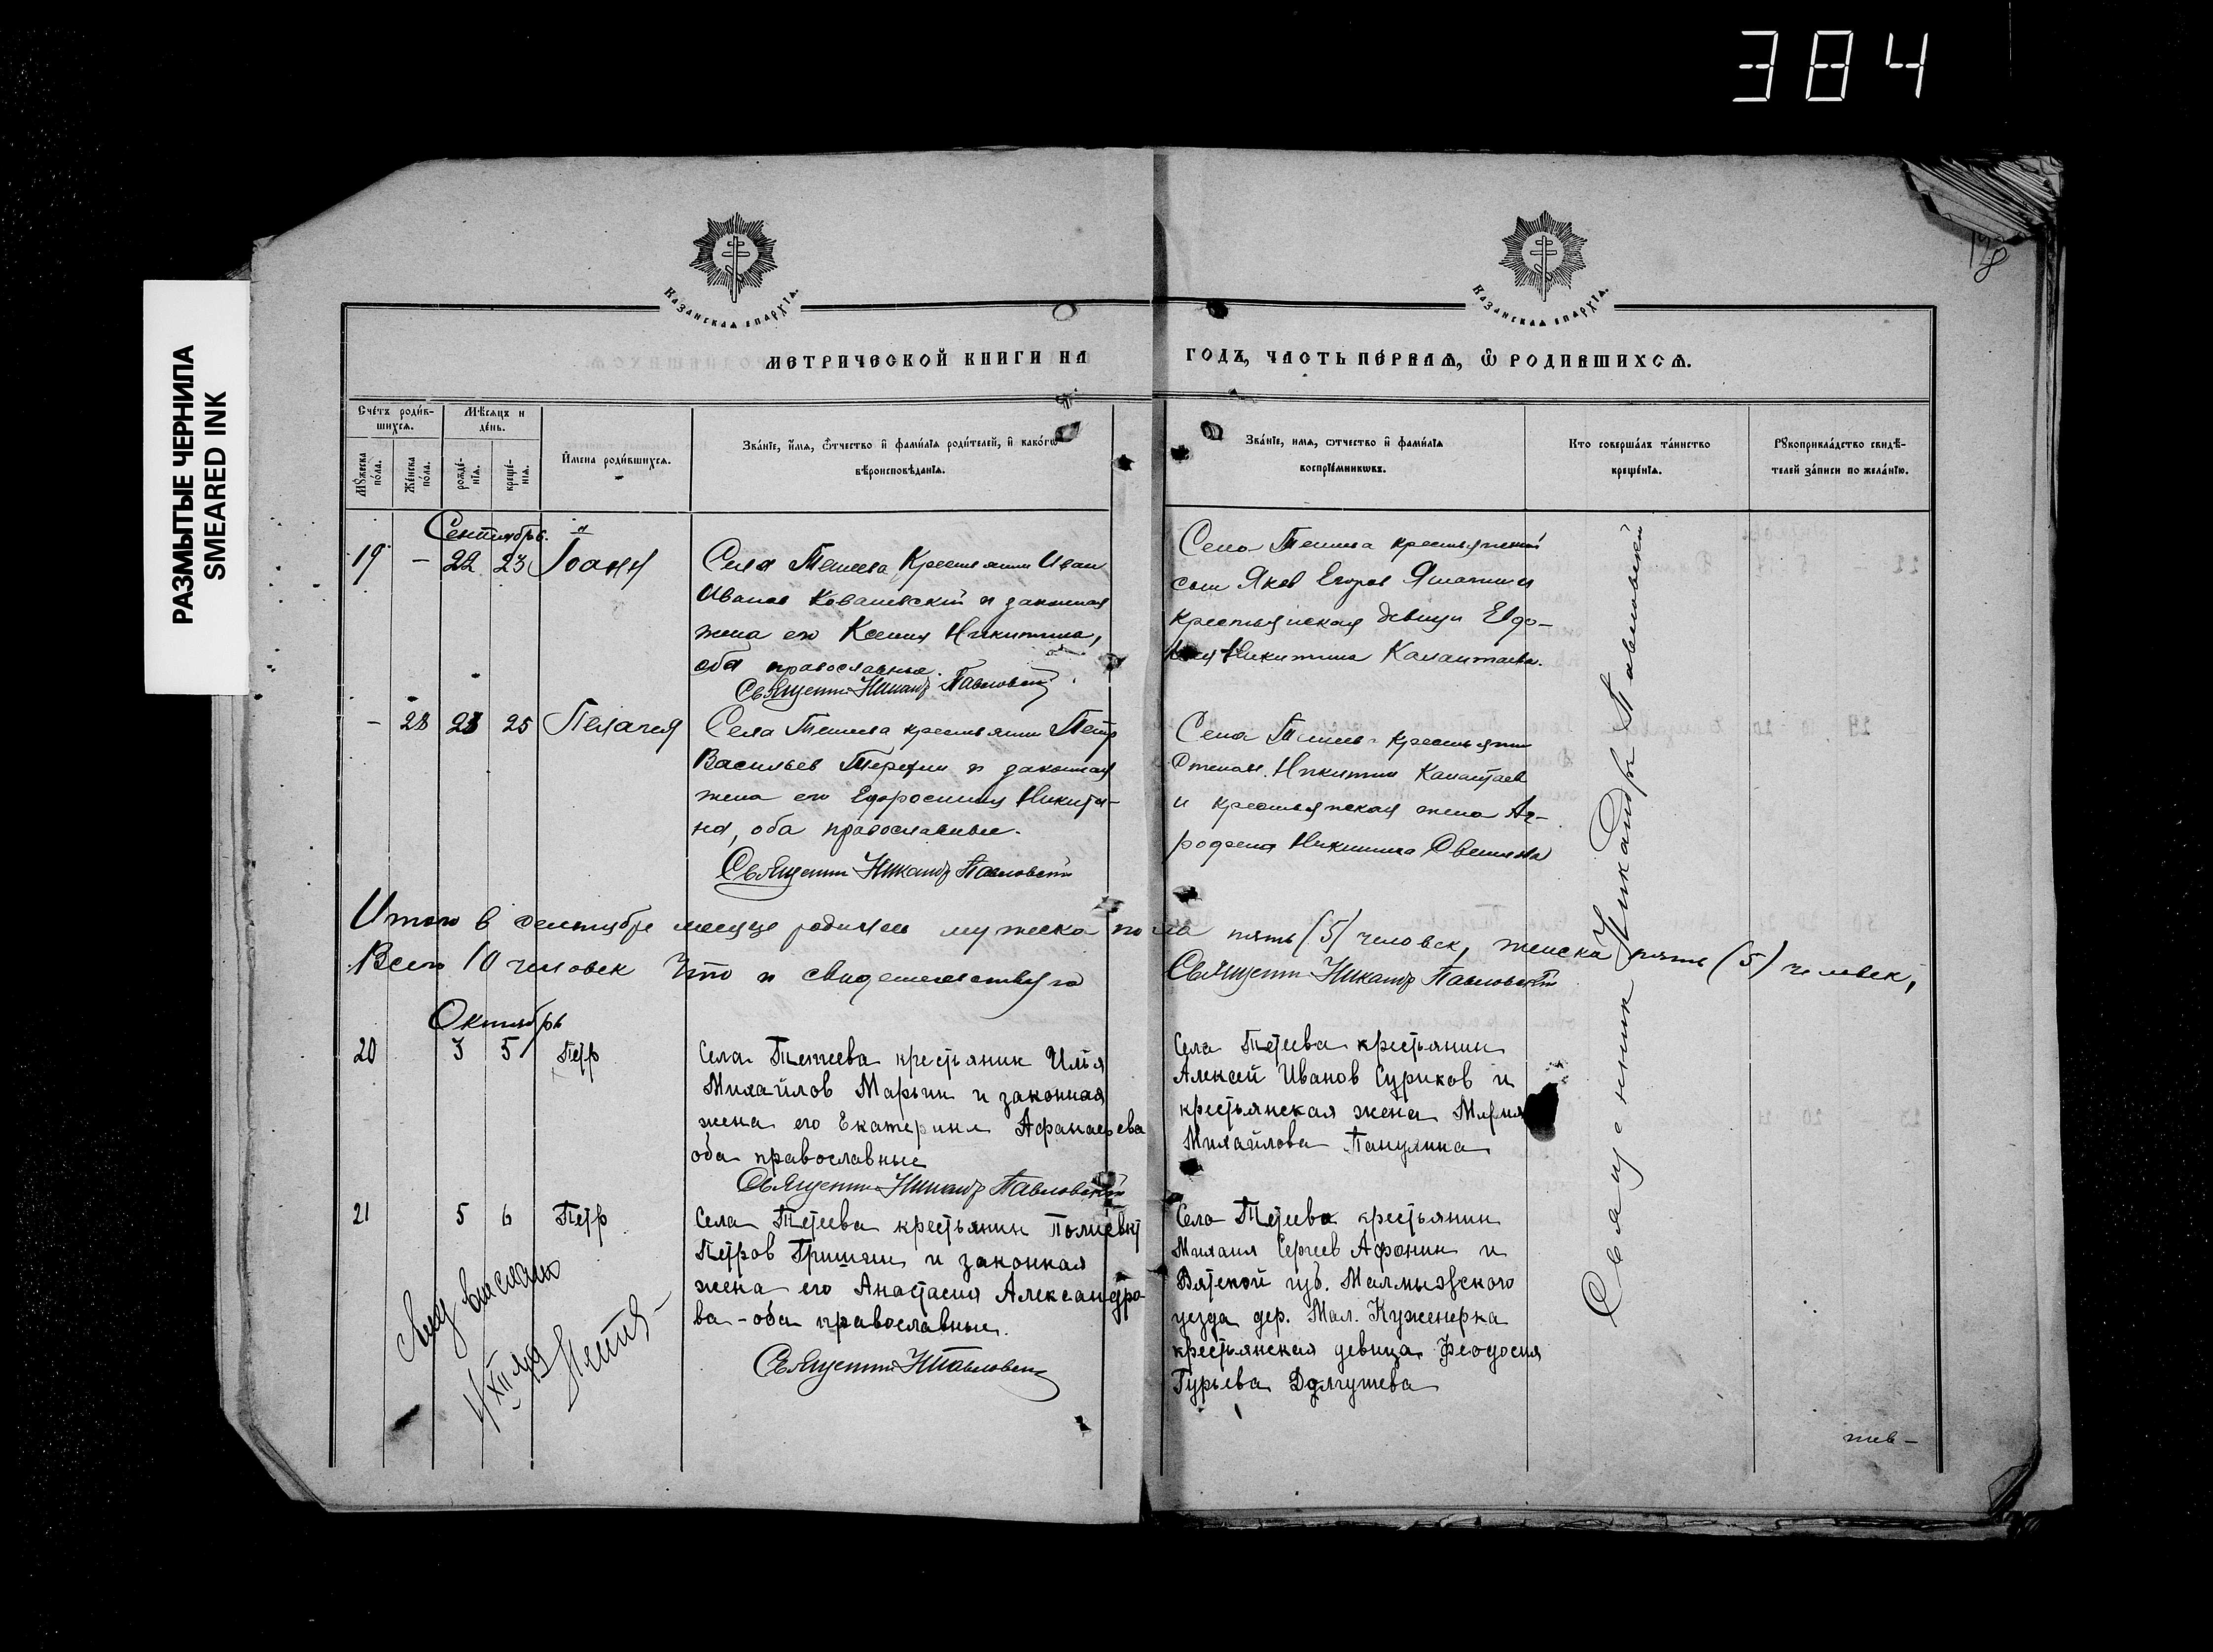 384
РАЗМЫТЫЕ ЧЕРНИЛА
SMEARED INK
Казанская епархїѧ.
Казанская епархїѧ.
МЕТРИЧЕСКОЙ КНИГИ НА ГОДЪ, ЧАСТЬ ПЕ́РВАѦ, Ѽ РОДИВШИХСѦ.
Сче́тъ роди́в-
шихсѧ.
Мѣ́сѧцъ и
де́нь.
Мꙋ́жеска
по́ла.
Же́нска
по́ла.
рожде́-
нїѧ.
креще́-
нїѧ.
И҆́мена роди́вшихсѧ.
Зва́нїе, и҆́мѧ, ѻ҆́тчество и҆ фами́лїѧ роди́телей, и҆ како́гѡ
вѣроисповѣ́данїѧ.
Зва́нїе, имѧ, ѻтчество и҆ фами́лїѧ
воспрїе́мникѡвъ.
Кто соверша́лъ та́инство
креще́нїѧ.
Рꙋкоприкла́дство свидѣ́-
телей за́писи по жела́нїю.
Сентябрь.
19 – 22 23 Іоанн
Села Тенеева Крестьянин Иван
Иванов Ковалевский и законная
жена его Ксения Никитина,
оба православные.
Священник Никандр Павловский
Села Тенеева крестьянский
сын Яков Егоров
крестьянская девица Евдо-
кия Никитина Калантаева.
– 25 Пелагея
Села Тенеева крестьянин Петр
Васильев Терехин и законная
жена его Евфросиния Никити-
на, оба православные.
Священник Никандр Павловский
Села Тенеева крестьянин
Степан Никитин Калантаев
и крестьянская жена Аг-
рофена Никитина
Итого в сентябре месяце родилось мужеска пола пять (5) человек, женска пять (5) человек,
Всего 10 человек Что и свидетельствую
Священник Никандр Павловский
Октябрь
20 3 5 Петр
Села Тетеева крестьянин Илья
Михайлов Марьин и законная
жена его Екатерина Афанасьева
оба православные
Священник Никандр Павловский
Села Тетеева крестьянин
Алексей Иванов Суриков и
крестьянская жена Мария
Михайлова Панулина
21 5 6 Петр
Села Тетеева крестьянин Полиевкт
Петров Гришин и законная
жена его Анастасия Александро-
ва - оба православные.
Священник Н Павловский
Села Тетеева крестьянин
Михаил Сергеев Афонин и
Вятской губ. Малмыжского
уезда дер. Мал. Куженерка
крестьянская девица Феодосия
Гурьева Долгушева
Священник Никандр Павловский